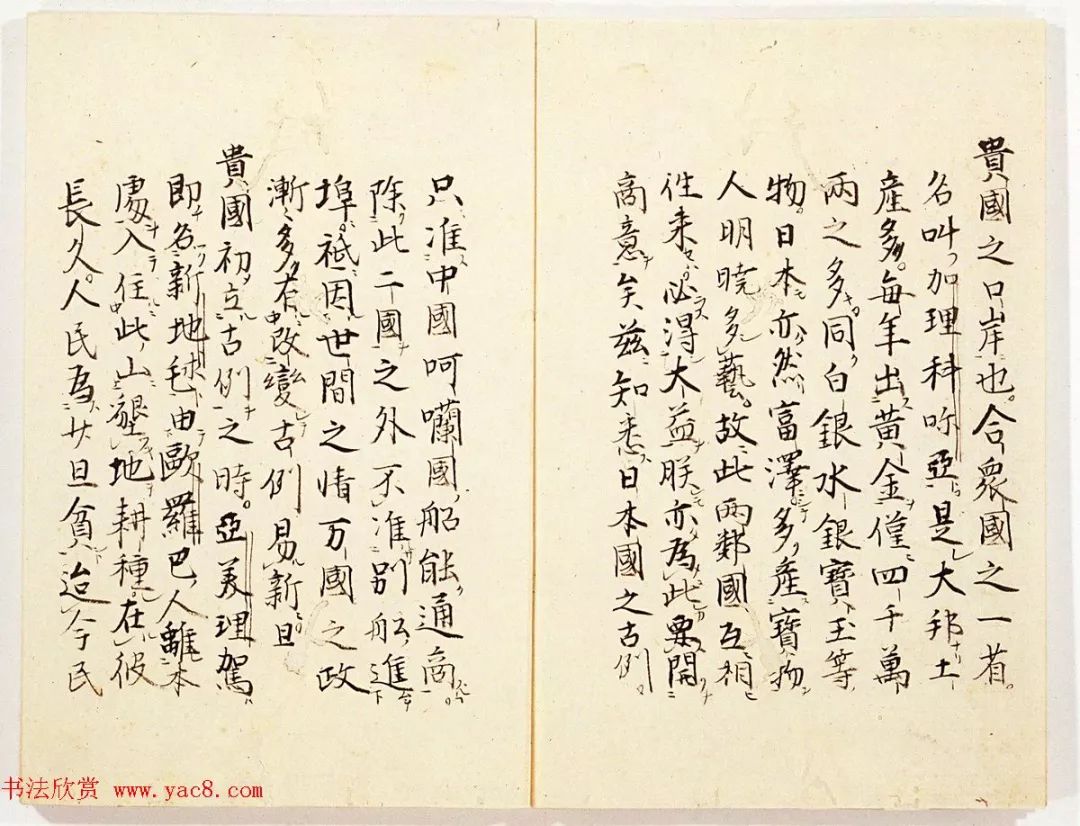 貴國之口岸也。合衆國之一省。
名叫加理科呢亞是大邦土
產多。每年出黃金僅四千萬
兩之多。同白銀水銀寶玉等
物。日本亦然富澤多產寶物
人明曉多藝。故此兩鄰國互相
徃来。必得大益朕亦為此要開
商意矣茲知悉日本國之古例。
只准中國呵囒國船能通商。
除此二國之外不准别舩進
埠。祗因世間之情万國之政
漸漸多有改變古例易新。且
貴國初立古例之時。亞美理駕
即名新地毬由歐羅巴人離本
處入住此山墾地耕種。在彼
長久。人民為少且貧迨今民
书法欣赏 www.yac8.com